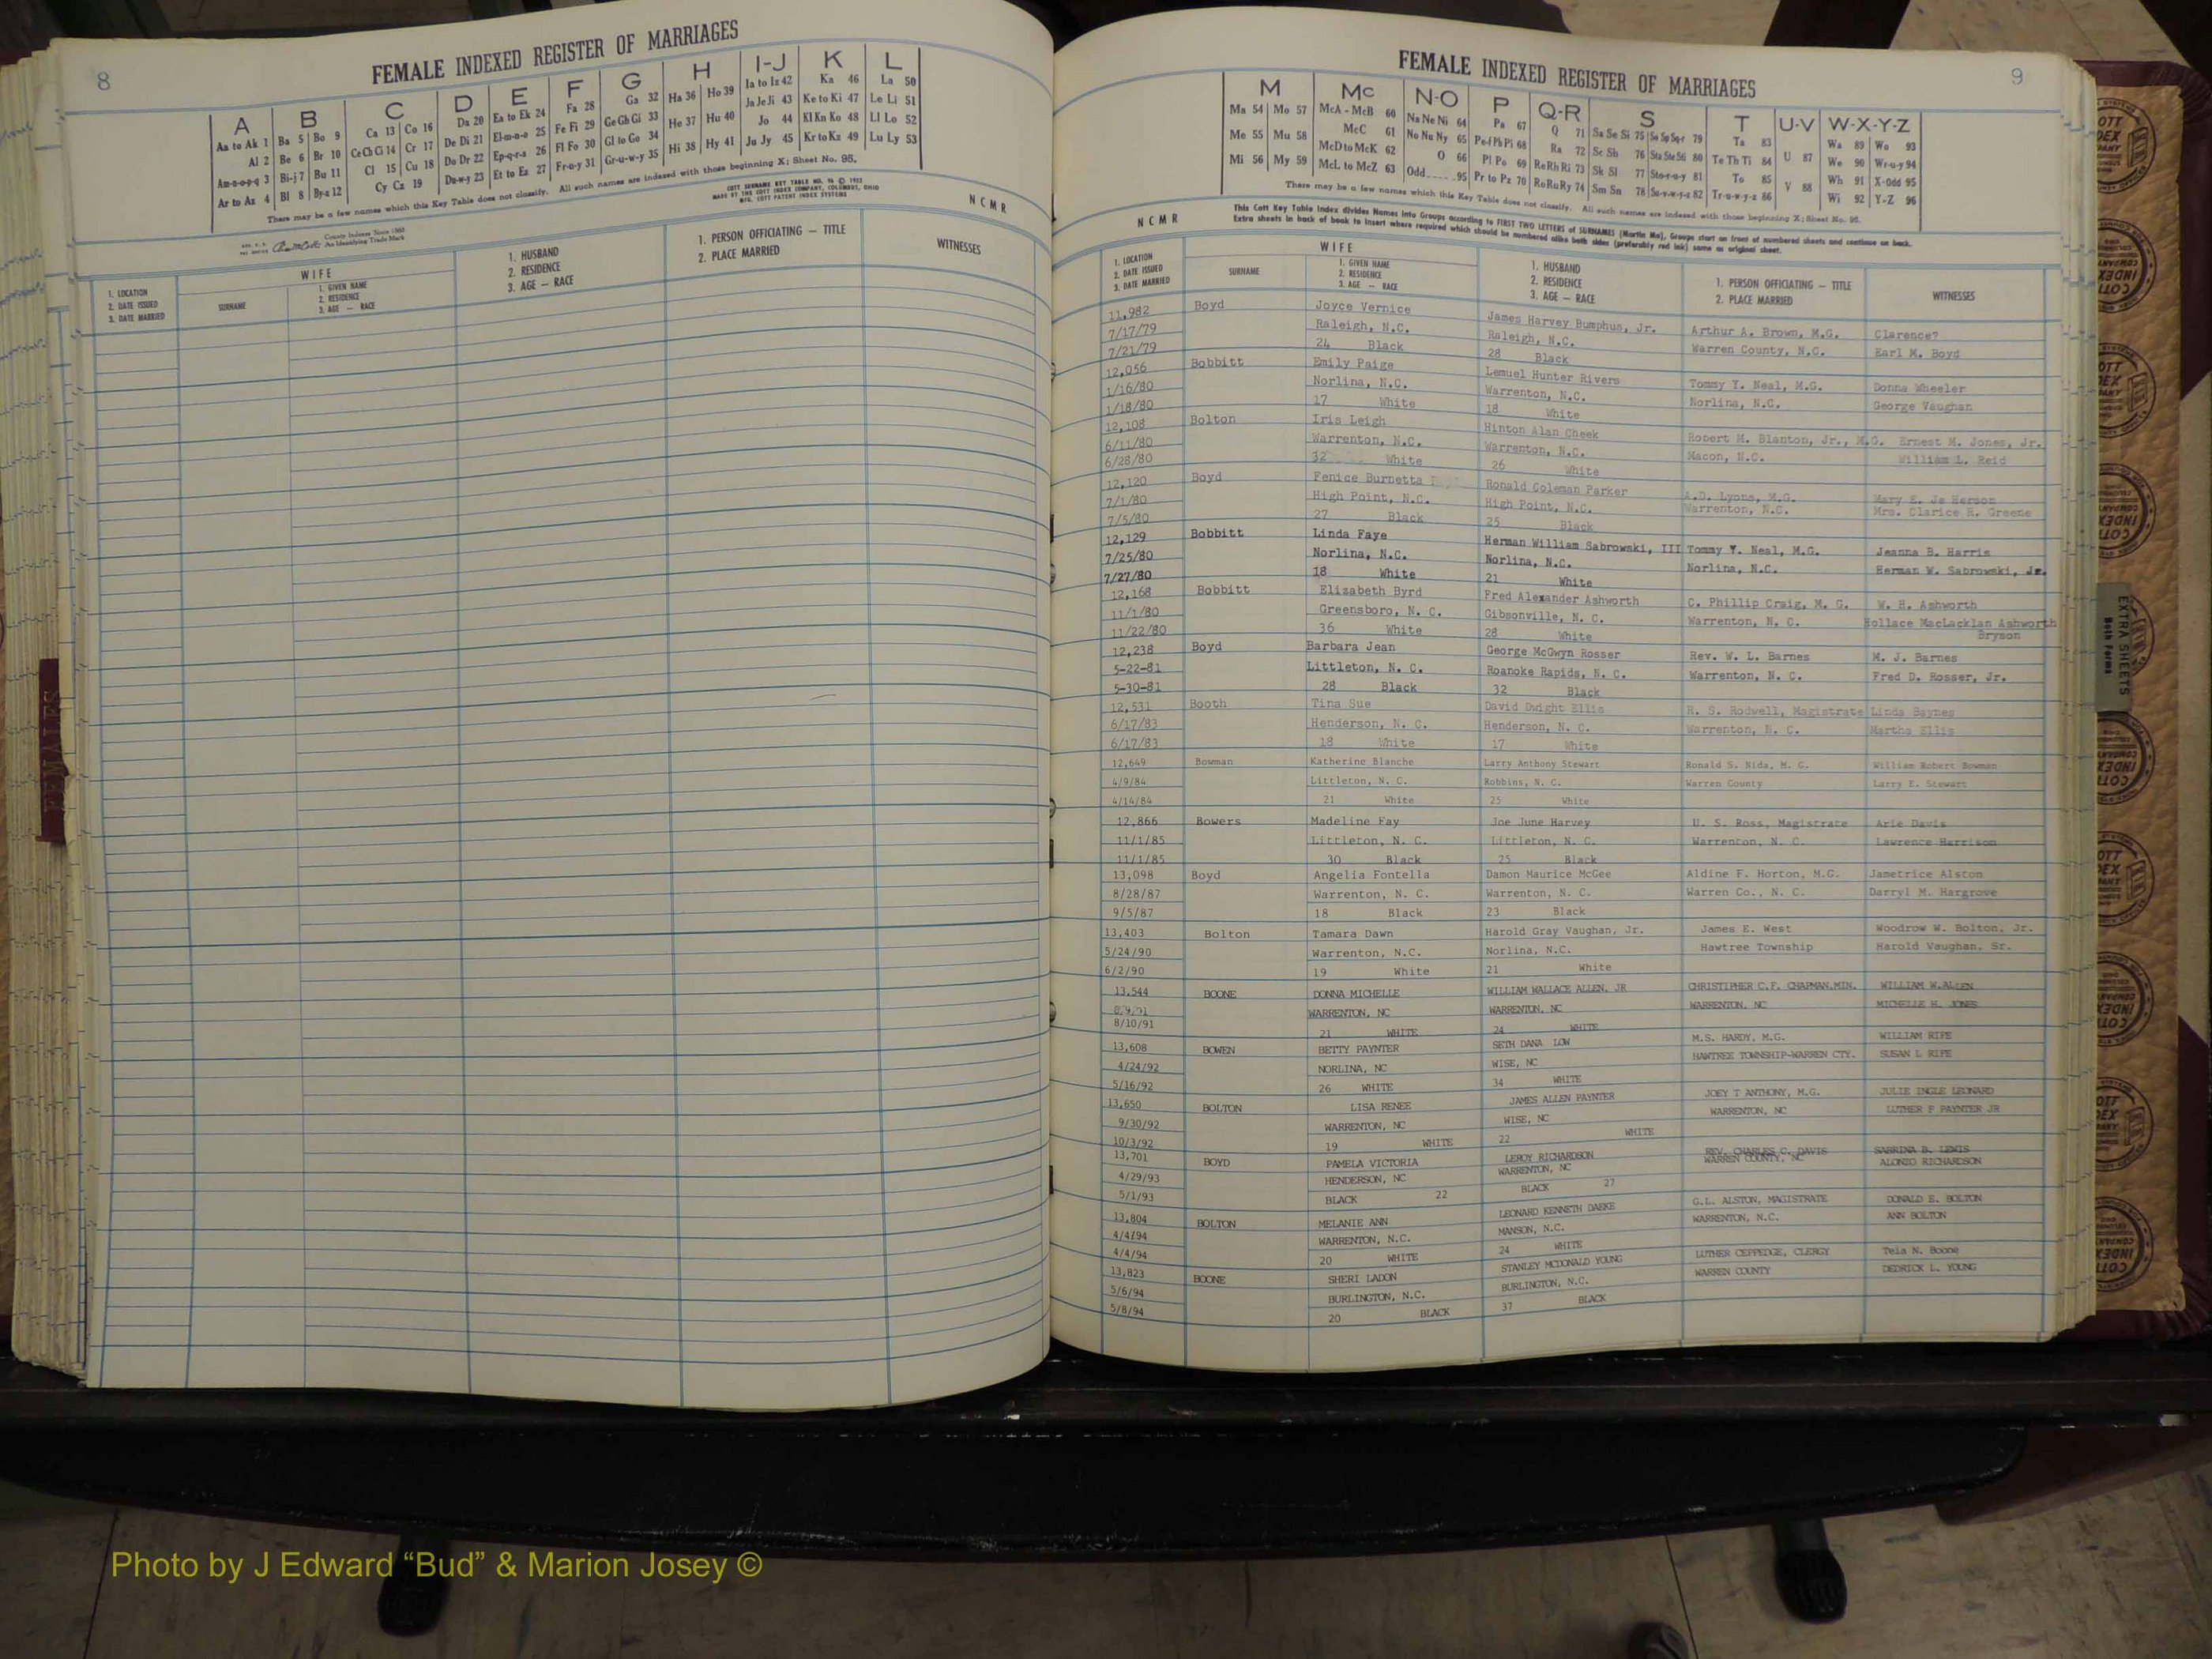 8
FEMALE INDEXED REGISTER OF MARRIAGES
A B C D E F G H I-J K L
Aa to Ak 1 Ba 5 Bo 9 Ca 13 Co 16 Da 20 Ea to Ek 24 Fa 28 Ga 32 Ha 36 Ho 39 Ia to Iz 42 Ka 46 La 50
Al 2 Be 6 Br 10 Ce Ch Ci 14 Cr 17 De Di 21 El-m-n-o 25 Fe Fi 29 Ge Gh Gi 33 He 37 Hu 40 Ja Je Ji 43 Ke to Ki 47 Le Li 51
Am-n-o-p-q 3 Bi-j 7 Bu 11 Cl 15 Cu 18 Do Dr 22 Ep-q-r-s 26 Fl Fo 30 Gl to Go 34 Hi 38 Hy 41 Jo 44 Kl Kn Ko 48 Ll Lo 52
Ar to Az 4 Bl 8 By-z 12 Cy Cz 19 Du-w-y 23 Et to Ez 27 Fr-u-y 31 Gr-u-w-y 35 Ju Jy 45 Kr to Kz 49 Lu Ly 53
There may be a few names which this Key Table does not classify. All such names are indexed with those beginning X; Sheet No. 95.
County Indexes Since 1888
An Identifying Trade Mark
COTT SURNAME KEY TABLE NO. 96 © 1952
MADE BY THE COTT INDEX COMPANY, COLUMBUS, OHIO
MFG. COTT PATENT INDEX SYSTEMS
NCMR
1. LOCATION
2. DATE ISSUED
3. DATE MARRIED
WIFE
SURNAME
1. GIVEN NAME
2. RESIDENCE
3. AGE — RACE
1. HUSBAND
2. RESIDENCE
3. AGE — RACE
1. PERSON OFFICIATING — TITLE
2. PLACE MARRIED
WITNESSES
FEMALES
FEMALE INDEXED REGISTER OF MARRIAGES
9
M Mc N-O P Q-R S T U-V W-X-Y-Z
Ma 54 Mo 57 McA - McB 60 Na Ne Ni 64 Pa 67 Q 71 Sa Se Si 75 So Sp Sq-r 79 Ta 83 U 87 Wa 89 Wo 93
Me 55 Mu 58 McC 61 No Nu Ny 65 Pe-f Ph Pi 68 Ra 72 Sc Sh 76 Sta Ste Sti 80 Te Th Ti 84 V 88 We 90 Wr-u-y 94
Mi 56 My 59 McD to McK 62 O 66 Pl Po 69 Re Rh Ri 73 Sk Sl 77 Sto-r-u-y 81 To 85 Wh 91 X-Odd 95
McL to McZ 63 Odd 95 Pr to Pz 70 Ro Ru Ry 74 Sm Sn 78 Su-v-w-y-z 82 Tr-u-w-y-z 86 Wi 92 Y-Z 96
There may be a few names which this Key Table does not classify. All such names are indexed with those beginning X; Sheet No. 95.
This Cott Key Table Index divides Names into Groups according to FIRST TWO LETTERS of SURNAMES (Martin Ma), Groups start on front of numbered sheets and continue on back.
Extra sheets in back of book to insert where required which should be numbered alike both sides (preferably red ink) same as original sheet.
NCMR
1. LOCATION
2. DATE ISSUED
3. DATE MARRIED
WIFE
SURNAME
1. GIVEN NAME
2. RESIDENCE
3. AGE — RACE
1. HUSBAND
2. RESIDENCE
3. AGE — RACE
1. PERSON OFFICIATING — TITLE
2. PLACE MARRIED
WITNESSES
11,982 Boyd Joyce Vernice James Harvey Bumphus, Jr. Arthur A. Brown, M.G. Clarence?
7/17/79 Raleigh, N.C. Raleigh, N.C. Warren County, N.C. Earl M. Boyd
7/21/79 24 Black 28 Black
12,056 Bobbitt Emily Paige Lemuel Hunter Rivers Tommy Y. Neal, M.G. Donna Wheeler
1/16/80 Norlina, N.C. Warrenton, N.C. Norlina, N.C. George Vaughan
1/18/80 17 White 18 White
12,108 Bolton Iris Leigh Hinton Alan Cheek Robert M. Blanton, Jr., M.G. Ernest M. Jones, Jr.
6/11/80 Warrenton, N.C. Warrenton, N.C. Macon, N.C. William L. Reid
6/28/80 32 White 26 White
12,120 Boyd Fenice Burnetta Ronald Coleman Parker A.D. Lyons, M.G. Mary E. Je Herson
7/1/80 High Point, N.C. High Point, N.C. Warrenton, N.C. Mrs. Clarice R. Greene
7/5/80 27 Black 25 Black
12,129 Bobbitt Linda Faye Herman William Sabrowski, III Tommy Y. Neal, M.G. Jeanna B. Harris
7/25/80 Norlina, N.C. Norlina, N.C. Norlina, N.C. Herman W. Sabrowski, Jr.
7/27/80 18 White 21 White
12,168 Bobbitt Elizabeth Byrd Fred Alexander Ashworth C. Phillip Craig, M. G. W. H. Ashworth
11/1/80 Greensboro, N. C. Gibsonville, N. C. Warrenton, N. C. Hollace MacLacklan Ashworth
Bryson
11/22/80 36 White 28 White
12,238 Boyd Barbara Jean George McGwyn Rosser Rev. W. L. Barnes M. J. Barnes
5-22-81 Littleton, N. C. Roanoke Rapids, N. C. Warrenton, N. C. Fred D. Rosser, Jr.
5-30-81 28 Black 32 Black
12,531 Booth Tina Sue David Dwight Ellis R. S. Rodwell, Magistrate Linda Baynes
6/17/83 Henderson, N. C. Henderson, N. C. Warrenton, N. C. Martha Ellis
6/17/83 18 White 17 White
12,649 Bowman Katherine Blanche Larry Anthony Stewart Ronald S. Nida, M. G. William Robert Bowman
4/9/84 Littleton, N. C. Robbins, N. C. Warren County Larry E. Stewart
4/14/84 21 White 25 White
12,866 Bowers Madeline Fay Joe June Harvey U. S. Ross, Magistrate Arie Davis
11/1/85 Littleton, N. C. Littleton, N. C. Warrenton, N. C. Lawrence Harrison
11/1/85 30 Black 25 Black
13,098 Boyd Angelia Fontella Damon Maurice McGee Aldine F. Horton, M.G. Jametrice Alston
8/28/87 Warrenton, N. C. Warrenton, N. C. Warren Co., N. C. Darryl M. Hargrove
9/5/87 18 Black 23 Black
13,403 Bolton Tamara Dawn Harold Gray Vaughan, Jr. James E. West Woodrow W. Bolton, Jr.
5/24/90 Warrenton, N.C. Norlina, N.C. Hawtree Township Harold Vaughan, Sr.
6/2/90 19 White 21 White
13,544 BOONE DONNA MICHELLE WILLIAM WALLACE ALLEN, JR CHRISTIPHER C.F. CHAPMAN,MIN. WILLIAM W.ALLEN
8/9/91 WARRENTON, NC WARRENTON, NC WARRENTON, NC MICHELLE H. JONES
8/10/91 21 WHITE 24 WHITE
13,608 BOWEN BETTY PAYNTER SETH DANA LOW M.S. HARDY, M.G. WILLIAM RIPE
4/24/92 NORLINA, NC WISE, NC HAWTREE TOWNSHIP-WARREN CTY. SUSAN L RIPE
5/16/92 26 WHITE 34 WHITE
13,650 BOLTON LISA RENEE JAMES ALLEN PAYNTER JOEY T ANTHONY, M.G. JULIE INGLE LEONARD
9/30/92 WARRENTON, NC WISE, NC WARRENTON, NC LUTHER F PAYNTER JR
10/3/92 19 WHITE 22 WHITE
13,701 BOYD PAMELA VICTORIA LEROY RICHARDSON REV. CHARLES C. DAVIS SABRINA B. LEWIS
4/29/93 HENDERSON, NC WARRENTON, NC WARREN COUNTY, NC ALONZO RICHARDSON
5/1/93 BLACK 22 BLACK 27
13,804 BOLTON MELANIE ANN LEONARD KENNETH DAEKE G.L. ALSTON, MAGISTRATE DONALD E. BOLTON
4/4/94 WARRENTON, N.C. MANSON, N.C. WARRENTON, N.C. ANN BOLTON
4/4/94 20 WHITE 24 WHITE
13,823 BOONE SHERI LADON STANLEY MCDONALD YOUNG LUTHER CEPPEDGE, CLERGY Teia N. Boone
5/6/94 BURLINGTON, N.C. BURLINGTON, N.C. WARREN COUNTY DEDRICK L. YOUNG
5/8/94 20 BLACK 37 BLACK
EXTRA SHEETS
Both Forms
Photo by J Edward “Bud” & Marion Josey ©